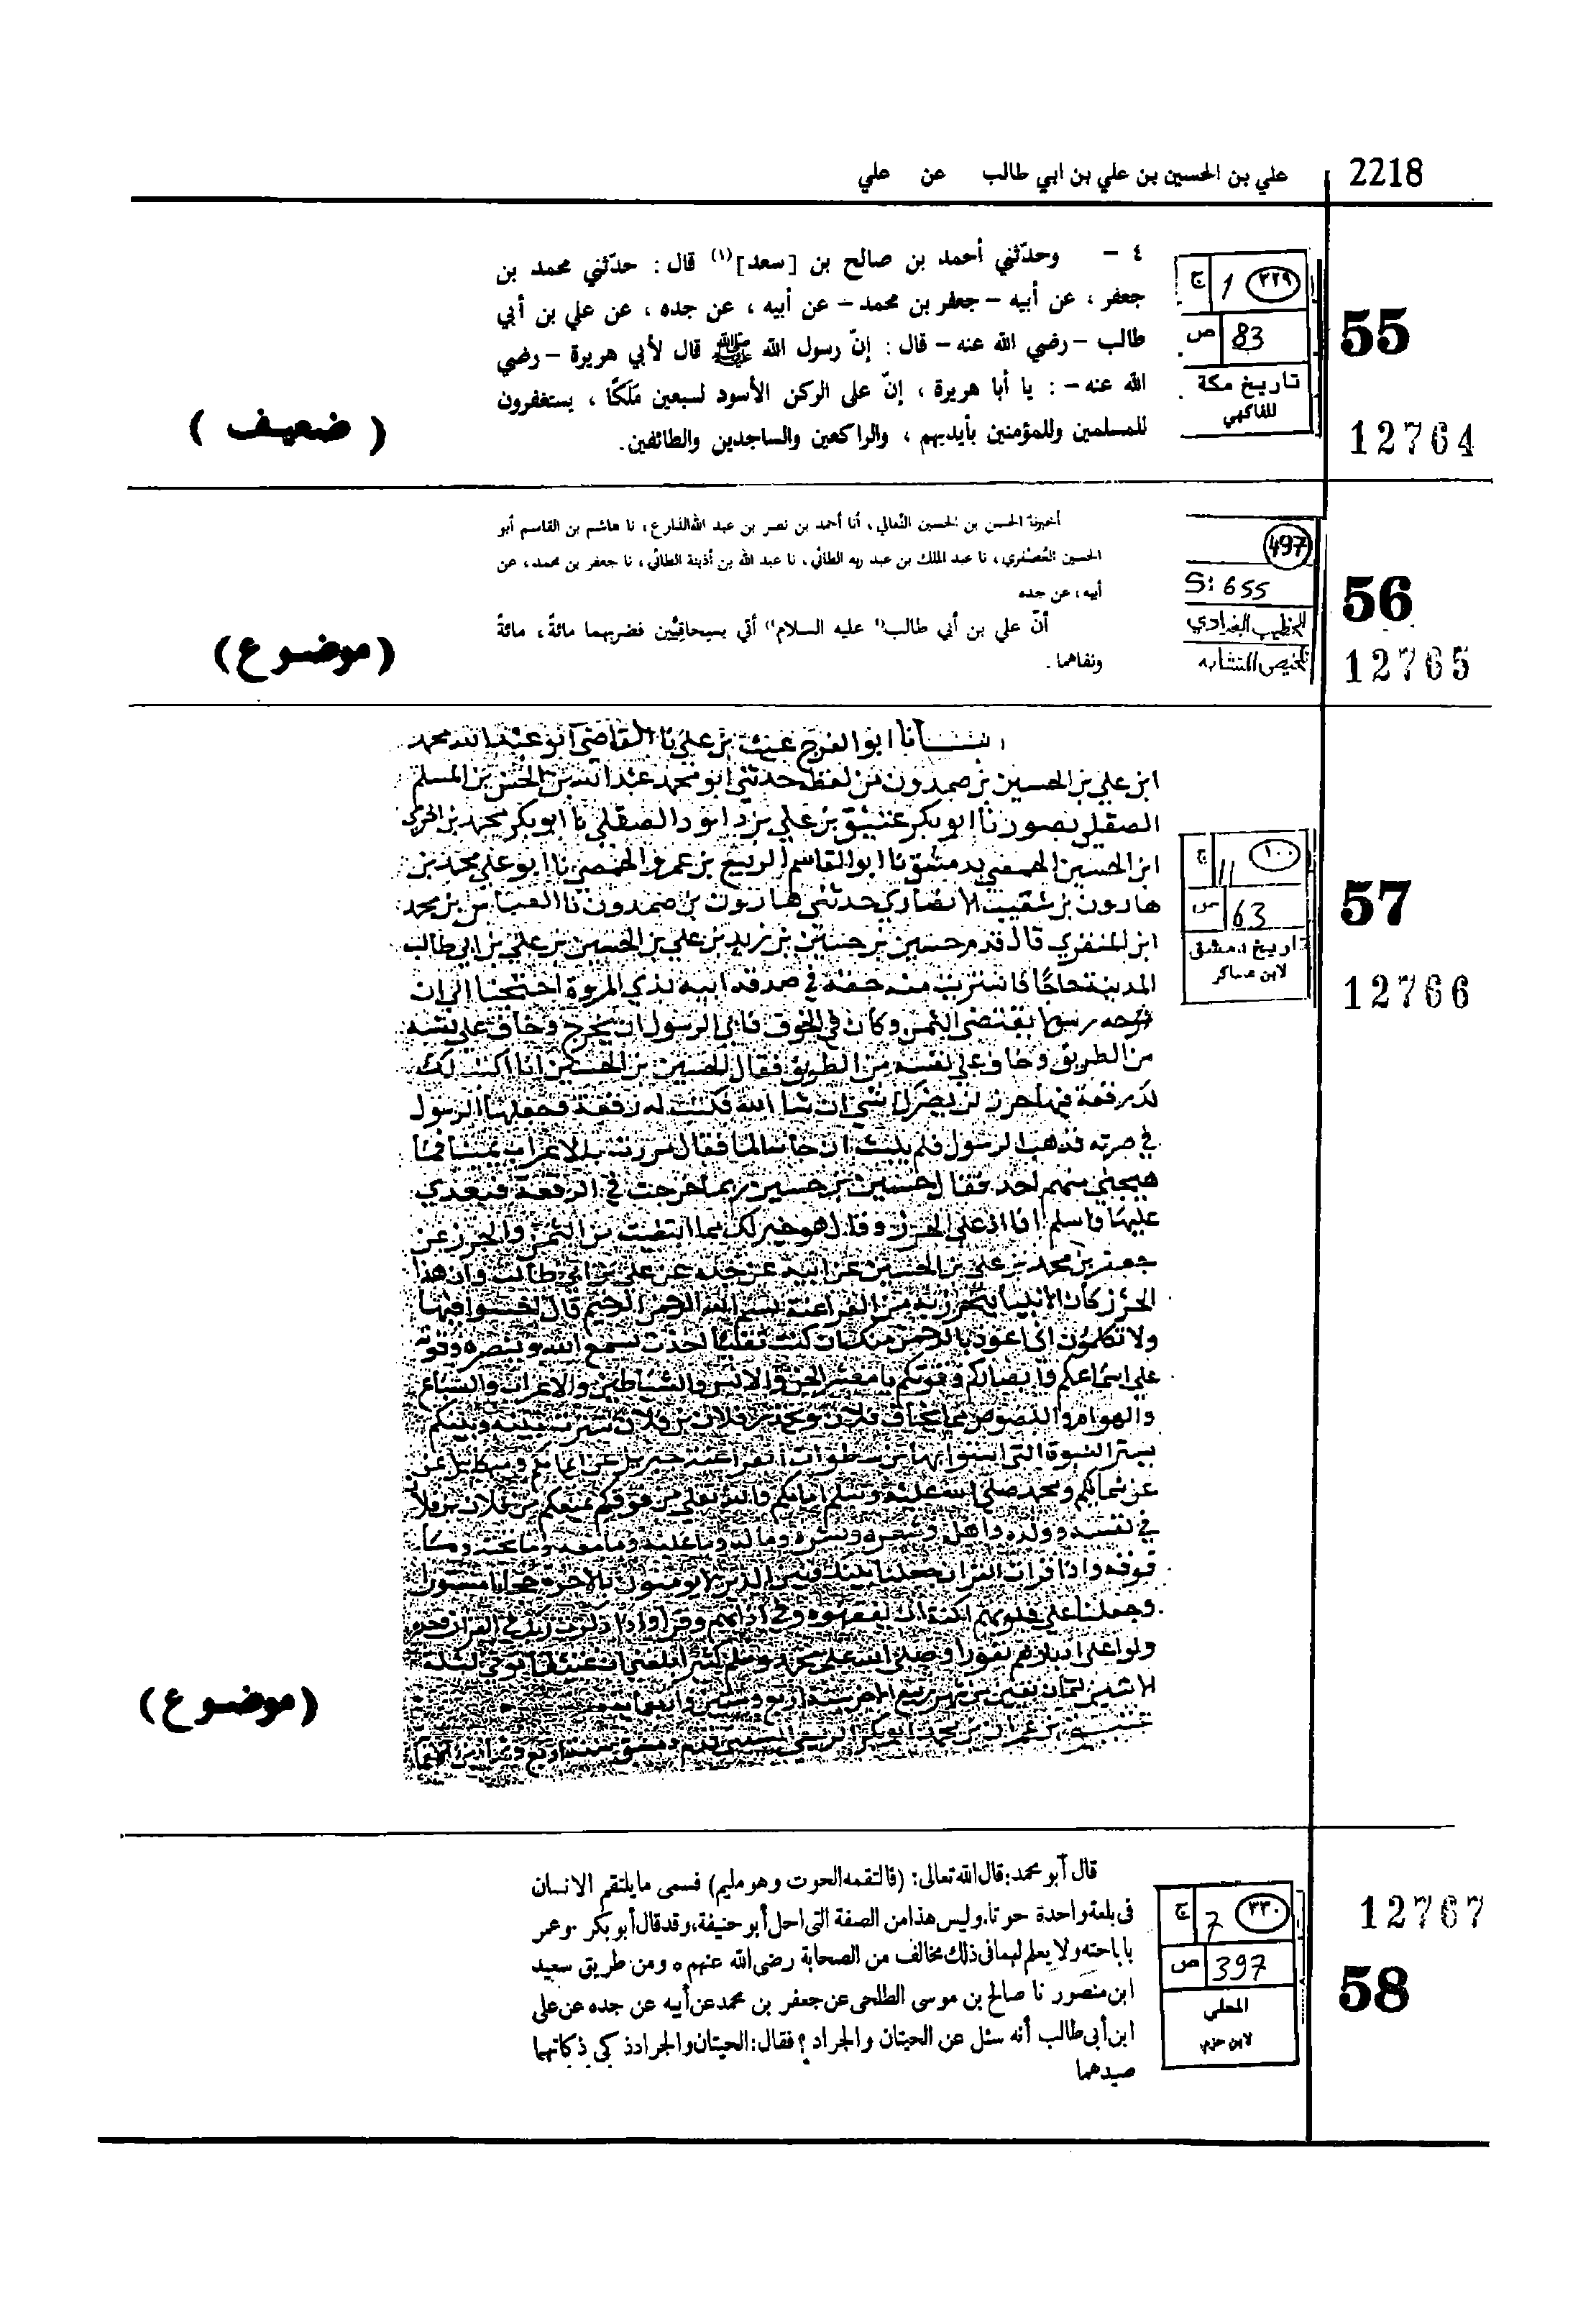 2218
علي بن الحسين بن علي بن ابي طالب عن علي
55
12764
ج 1 ٣٢٩
ص 83
تاريخ مكة
للفاكهي
٤ - وحدّثني أحمد بن صالح بن [سعد](١) قال : حدّثني محمد بن
جعفر ، عن أبيه - جعفر بن محمد - عن أبيه ، عن جده ، عن علي بن أبي
طالب - رضي الله عنه - قال : إنّ رسول الله ﷺ قال لأبي هريرة - رضي
الله عنه - : يا أبا هريرة ، إنّ على الركن الأسود لسبعين مَلَكًا ، يستغفرون
للمسلمين وللمؤمنين بأيديهم ، والراكعين والساجدين والطائفين.
( ضعيف )
56
12765
497
S: 655
الخطيب البغدادي
تلخيص المتشابه
أخبرنا الحسن بن الحسين النعالي ، أنا أحمد بن نصر بن عبد الله الذارع ، نا هاشم بن القاسم أبو
الحسين العُصْفري ، نا عبد الملك بن عبد ربه الطائي ، نا عبد الله بن أذينة الطائي ، نا جعفر بن محمد ، عن
أبيه ، عن جده
أنّ علي بن أبي طالب" عليه السلام" أتي بسحاقتين فضربهما مائةً ، مائةً
ونفاهما .
(موضوع)
57
12766
ج 11 ١٠٠
ص 163
تاريخ دمشق
لابن عساكر
انا ابو الفرج غيث بن علي نا القاضي ابو عبد الله محمد
ابن علي بن الحسين بن صمدون من لفظه حدثني ابو محمد عبد الله بن الحسن بن المسلم
الصقلي بصور نا ابو بكر عتيق بن علي بن داود الصقلي نا ابو بكر محمد بن
ابن الحسين الحمصي بدمشق نا ابو القاسم الربيع بن عمرو الحمصي نا ابو علي محمد بن
هارون بن شعيب الانصاري حدثني هارون بن صمدون نا العباس بن محمد
ابن المنقري قال قدم حسين بن حسين بن زيد بن علي بن الحسين بن علي بن ابي طالب
المدينة حاجا فاشتريت منه حقه في صدقه ابيه بذي المروة احتجنا الى ان
نوجه رسولا يقتضي الثمن وكان في الخوف فابى الرسول ان يخرج وخاف على نفسه
من الطريق وخاف على نفسه من الطريق فقال الحسين بن الحسين انا اكتب لك
رقعة فيها حرز لن يضرك شي ان شا الله فكتب له رقعة فجعلها الرسول
في صرته فذهب الرسول فلم يلبث ان جا سالما فقال مررت بالاعراب يمينا
هيجني منهم احد فقال حسين بن حسين
جعفر بن محمد بن علي بن الحسين عن ابيه عن جده عن علي بن ابي طالب وان هذا
الحرز كان الانبيا يتحرز به من الفراعنة بسم الله الرحمن الرحيم قال اخسوا فيها
ولا تكلمون اني اعوذ بالرحمن منك ان كنت تقيا اخذت بسمع الله وبصره وقوته
على اسماعكم وابصاركم وقوتكم يا معشر الجن والانس والشياطين والاعراب والسباع
والهوام واللصوص مما يخاف ويحذر فلان بن فلان سترت بينه وبينكم
بستر النبوة التي استتروا بها من سطوات الفراعنة جبريل عن ايمانكم وميكائيل عن
عن شمالكم ومحمد صلى الله عليه وسلم امامكم والله تعالى من فوقكم يمنعكم من فلان بن فلان
في نفسه وولده واهله وشعره وبشره وماله وما عليه وما معه وما تحته وما
فوقه واذا قرات القران جعلنا بينك وبين الذين لا يومنون بالاخرة حجابا مستورا
وجعلنا على قلوبهم اكنة ان يفقهوه وفي اذانهم وقرا واذا ذكرت ربك في القران وحده
ولوا على ادبارهم نفورا وصلى الله على محمد وسلم كثيرا
(موضوع)
12767
58
ج 7 ٣٣٠
ص 397
المحلي
لابن حزم
قال أبو محمد: قال الله تعالى: (فالتقمه الحوت وهو مليم) فسمى ما يلتقم الانسان
فى بلعة واحدة حوتا. وليس هذا من الصفة التى احل أبو حنيفة، وقد قال أبو بكر . وعمر
باباحته ولا يعلم لهما فى ذلك مخالف من الصحابة رضى الله عنهم ه ومن طريق سعيد
ابن منصور نا صالح بن موسى الطلحى عن جعفر بن محمد عن أبيه عن جده عن على
ابن أبى طالب أنه سئل عن الحيتان والجراد ؟ فقال: الحيتان والجراد ذكى ذكاتهما
صيدهما